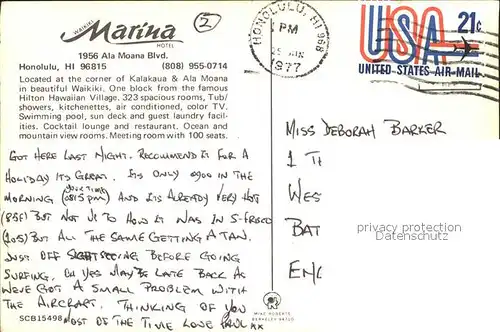 WAIKIKI
Marina
HOTEL
2
1956 Ala Moana Blvd.
Honolulu, HI 96815 (808) 955-0714
Located at the corner of Kalakaua & Ala Moana
in beautiful Waikiki. One block from the famous
Hilton Hawaiian Village. 323 spacious rooms, Tub/
showers, kitchenettes, air conditioned, color TV.
Swimming pool, sun deck and guest laundry facil-
ities. Cocktail lounge and restaurant. Ocean and
mountain view rooms. Meeting room with 100 seats.
GOT HERE LAST NIGHT. RECOMMEND IT FOR A
HOLIDAY ITS GREAT. IT'S ONLY 0900 IN THE
YOUR TIME
MORNING (0815 PM) AND ITS ALREADY VERY HOT
(85F) BUT NOT UP TO HOW IT WAS IN S-FRISCO
(105) BUT ALL THE SAME GETTING A TAN.
JUST OFF SIGHTSEEING BEFORE GOING
SURFING. OH YES MAY BE LATE BACK AS
WE'VE GOT A SMALL PROBLEM WITH
THE AIRCRAFT. THINKING OF YOU
MOST OF THE TIME LOVE PAUL XX
SCB15498
MIKE ROBERTS
BERKELEY 94710
HONOLULU, HI 968
PM
1977
USA 21¢
UNITED STATES AIR MAIL
MISS DEBORAH BARKER
1 TH
WES
BAT
ENG
privacy protection
Datenschutz